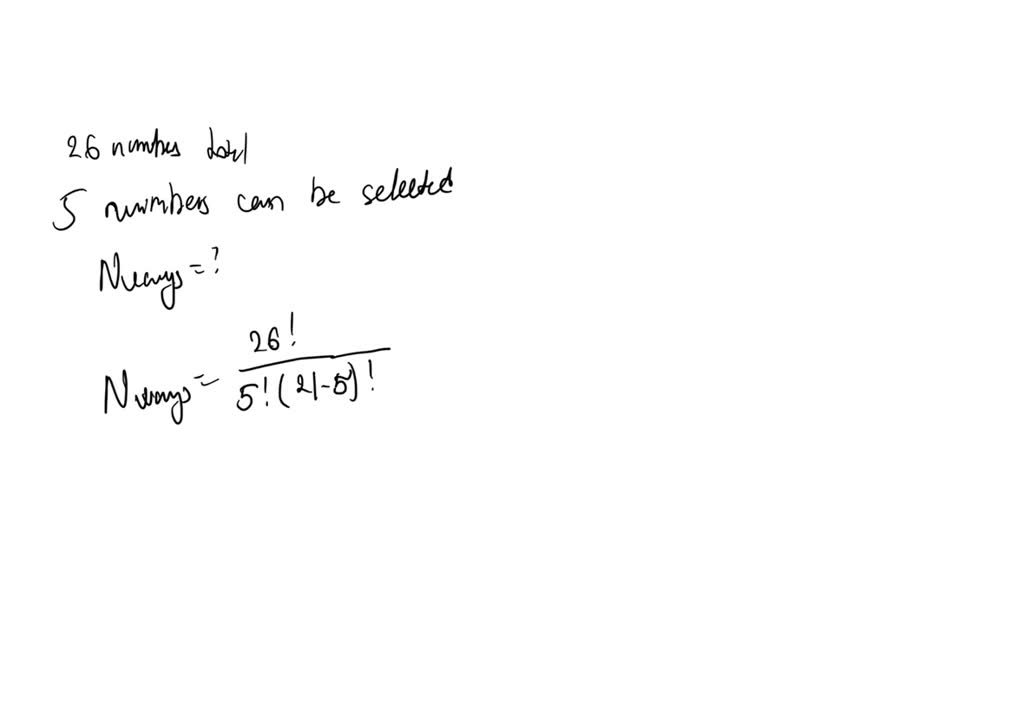 26 numbers total
5 numbers can be selected
Nways = ?
Nways = 26! / 5!(21-5)!